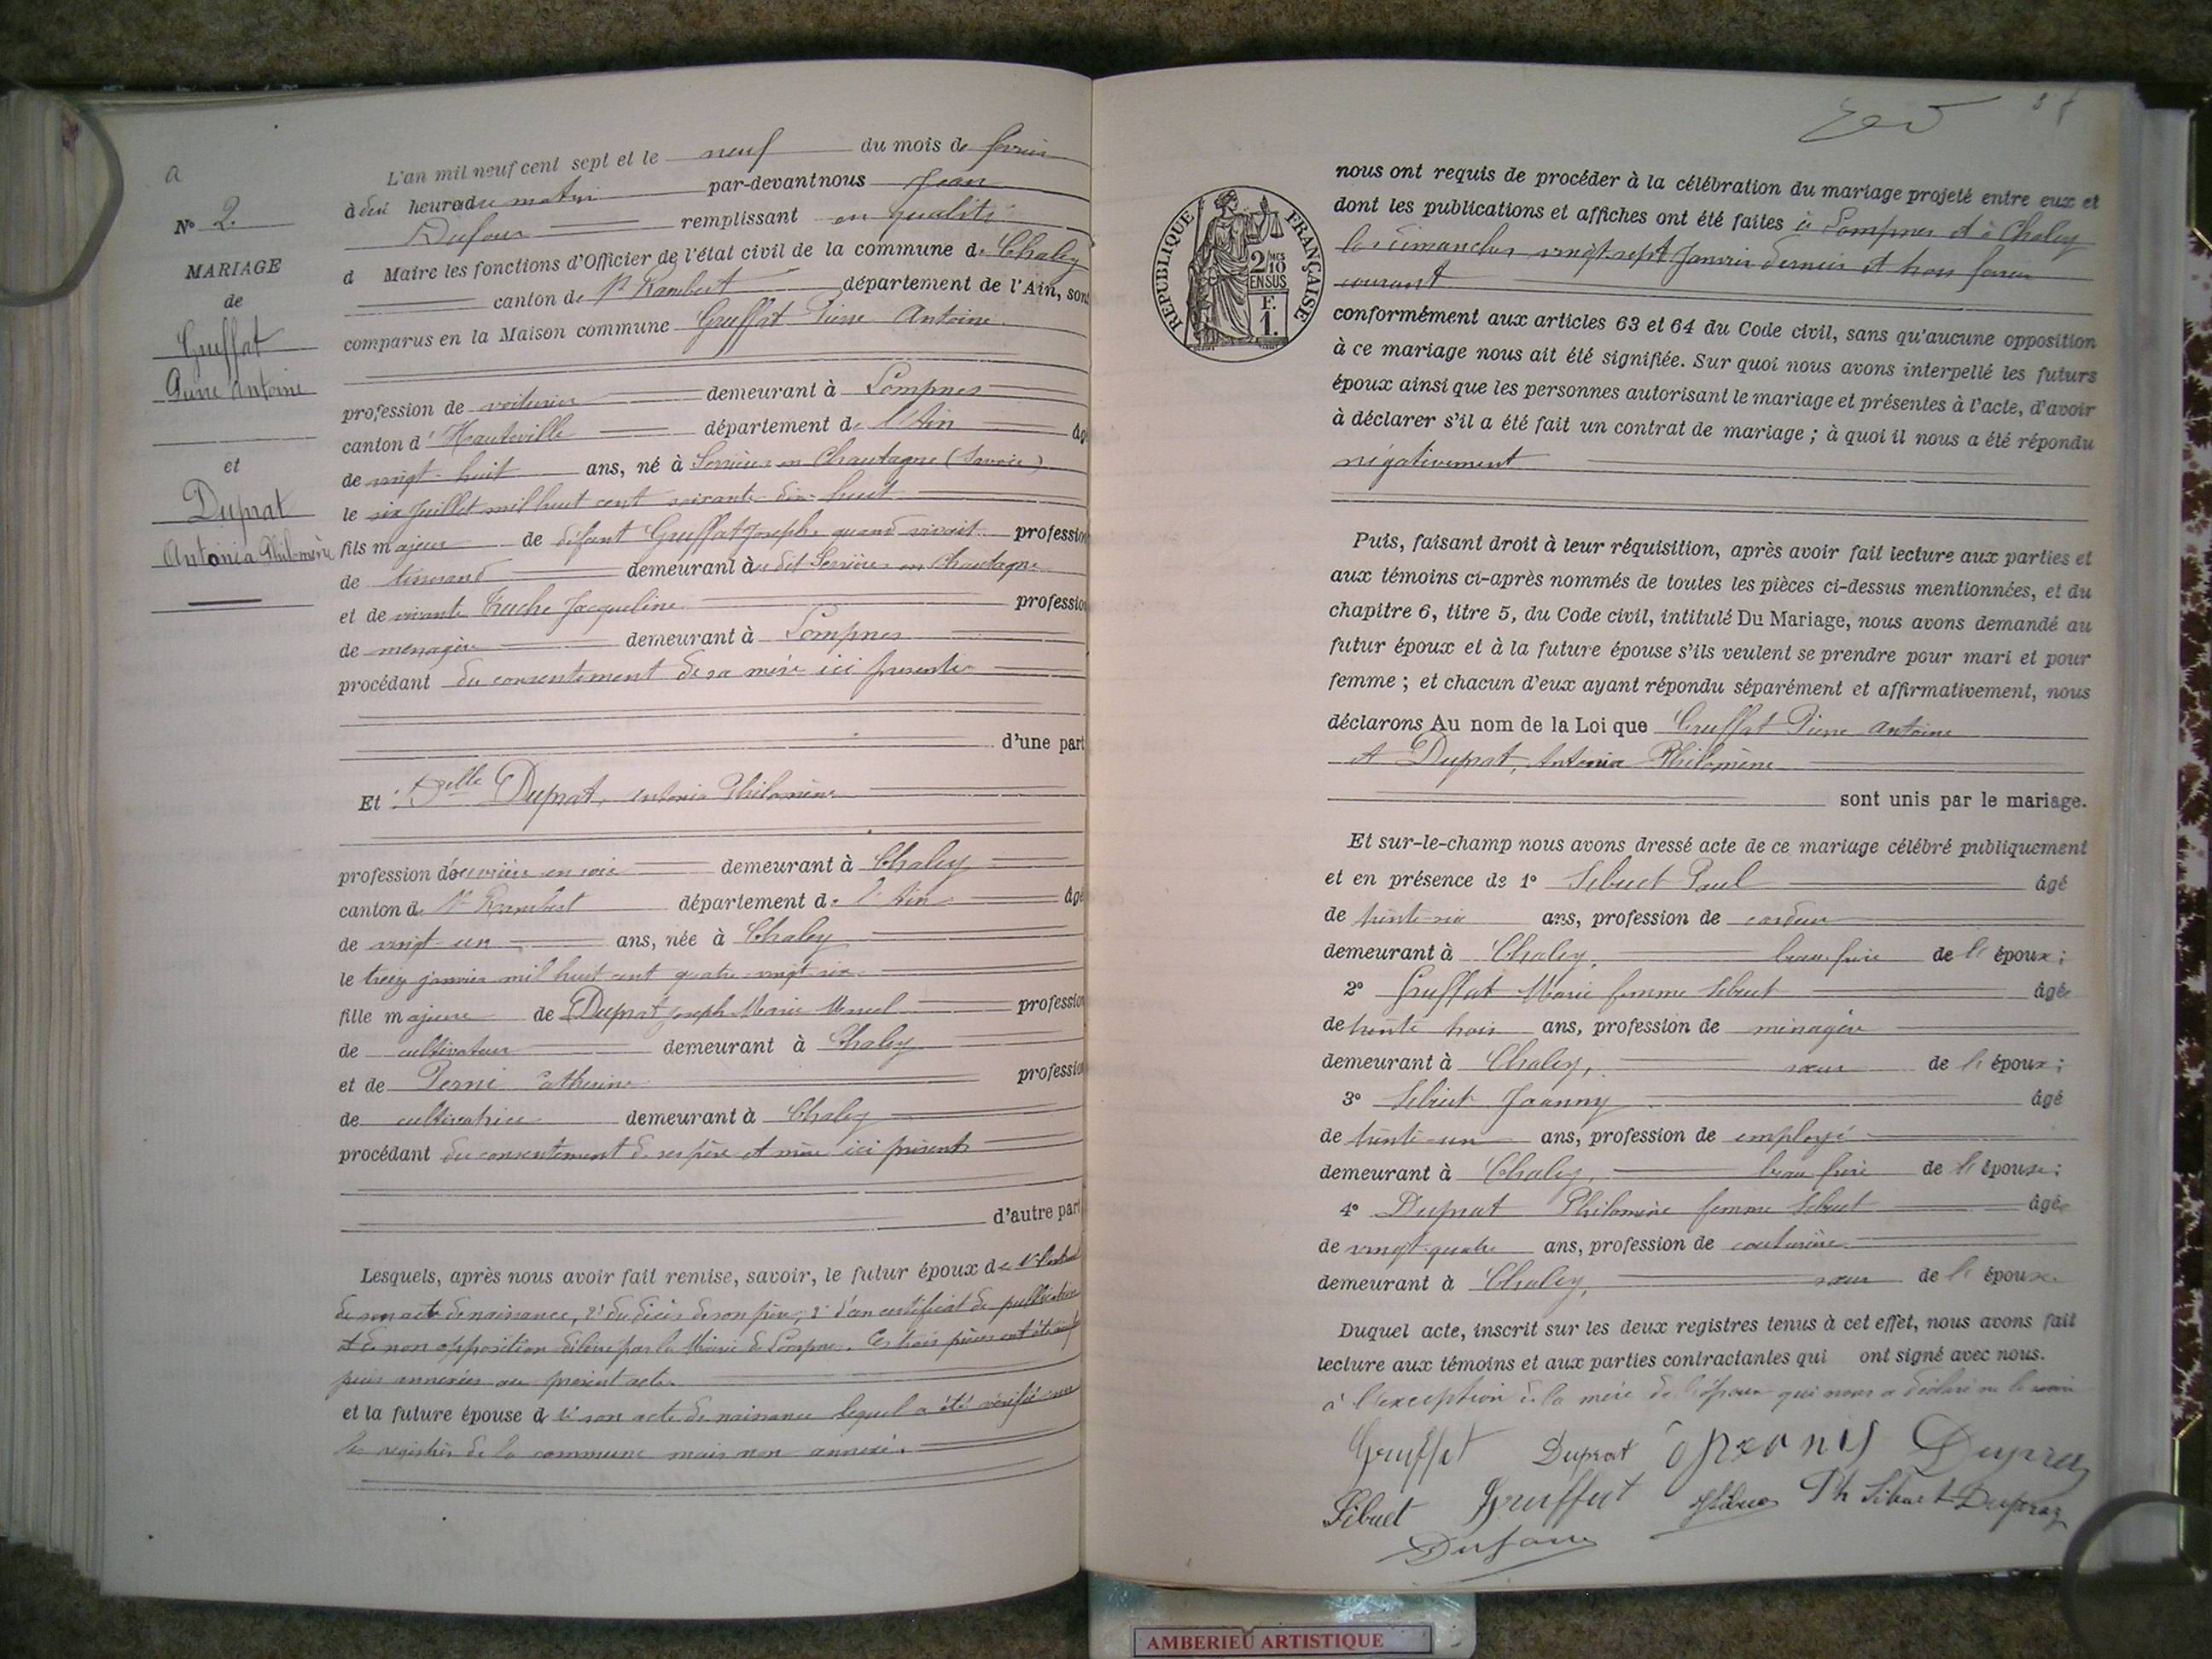 a
N° 2.
MARIAGE
de
Gruffat
Pierre Antoine
et
Duprat
Antonia Philomène
L'an mil neuf cent sept et le neuf du mois de février
à dix heures du matin par-devant nous Jean
Dufour remplissant en qualité
d Maire les fonctions d'Officier de l'état civil de la commune de Chaley
canton de St Rambert département de l'Ain, sont
comparus en la Maison commune Gruffat Pierre Antoine
profession de voiturier demeurant à Lompnes
canton d'Hauteville département de l'Ain âgé
de vingt-huit ans, né à Serrières en Chautagne (Savoie)
le six Juillet mil huit cent soixante-dix-huit
fils majeur de défunt Gruffat Joseph quand vivait profession
de tisserand demeurant à dit Serrières en Chautagne
et de vivante Truche Jacqueline profession
de ménagère demeurant à Lompnes
procédant du consentement de sa mère ici présente
d'une part
Et Delle Duprat, Antonia Philomène
profession d'ouvrière en soie demeurant à Chaley
canton de St Rambert département de l'Ain âgé
de vingt-un ans, née à Chaley
le treize janvier mil huit cent quatre-vingt-six
fille majeure de Duprat Joseph Marie Marcel profession
de cultivateur demeurant à Chaley
et de Perni Catherine profession
de cultivatrice demeurant à Chaley
procédant du consentement de ses père et mère ici présents
d'autre part
Lesquels, après nous avoir fait remise, savoir, le futur époux de 1° l'extrait
de son acte de naissance, 2° du décès de son père, 3° d'un certificat de publication
et de non opposition délivré par la Mairie de Lompnes. Ces trois pièces ont été
annexées au présent acte.
et la future épouse de 1° son acte de naissance lequel a été vérifié sur
les registres de la commune mais non annexé.
nous ont requis de procéder à la célébration du mariage projeté entre eux et
dont les publications et affiches ont été faites à Lompnes et à Chaley
les dimanches vingt-sept Janvier dernier et trois février
courant
RÉPUBLIQUE FRANÇAISE
2 MES
10
EN SUS
F.
1.
conformément aux articles 63 et 64 du Code civil, sans qu'aucune opposition
à ce mariage nous ait été signifiée. Sur quoi nous avons interpellé les futurs
époux ainsi que les personnes autorisant le mariage et présentes à l'acte, d'avoir
à déclarer s'il a été fait un contrat de mariage ; à quoi il nous a été répondu
négativement
Puis, faisant droit à leur réquisition, après avoir fait lecture aux parties et
aux témoins ci-après nommés de toutes les pièces ci-dessus mentionnées, et du
chapitre 6, titre 5, du Code civil, intitulé Du Mariage, nous avons demandé au
futur époux et à la future épouse s'ils veulent se prendre pour mari et pour
femme ; et chacun d'eux ayant répondu séparément et affirmativement, nous
déclarons Au nom de la Loi que Gruffat Pierre Antoine
et Duprat, Antonia Philomène
sont unis par le mariage.
Et sur-le-champ nous avons dressé acte de ce mariage célébré publiquement
et en présence de 1° Sibuet Paul âgé
de trente-six ans, profession de cardeur
demeurant à Chaley, beau-frère de l'époux ;
2° Gruffat Marie femme Sibuet âgée
de trente trois ans, profession de ménagère
demeurant à Chaley, sœur de l'époux ;
3° Sibuet Joanny âgé
de trente-un ans, profession de employé
demeurant à Chaley, beau-frère de l'épouse ;
4° Duprat Philomène femme Sibuet âgée
de vingt-quatre ans, profession de couturière
demeurant à Chaley, sœur de l'épouse.
Duquel acte, inscrit sur les deux registres tenus à cet effet, nous avons fait
lecture aux témoins et aux parties contractantes qui ont signé avec nous.
à l'exception de la mère de l'époux qui nous a déclaré ne le savoir
Gruffat Duprat Dupraz
Sibuet Gruffat Ph Sibuet Dupraz
Dufour
AMBERIEU ARTISTIQUE